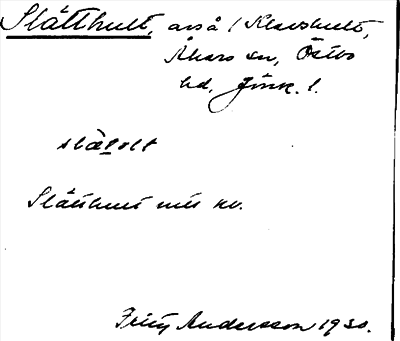 Slätthult, avs å / Klavshult,
Åkers sn, Östbo
hd, Jönk. l.
slä̀tolt
Slätthult nitt kv.
Fritz Andersson 1930.